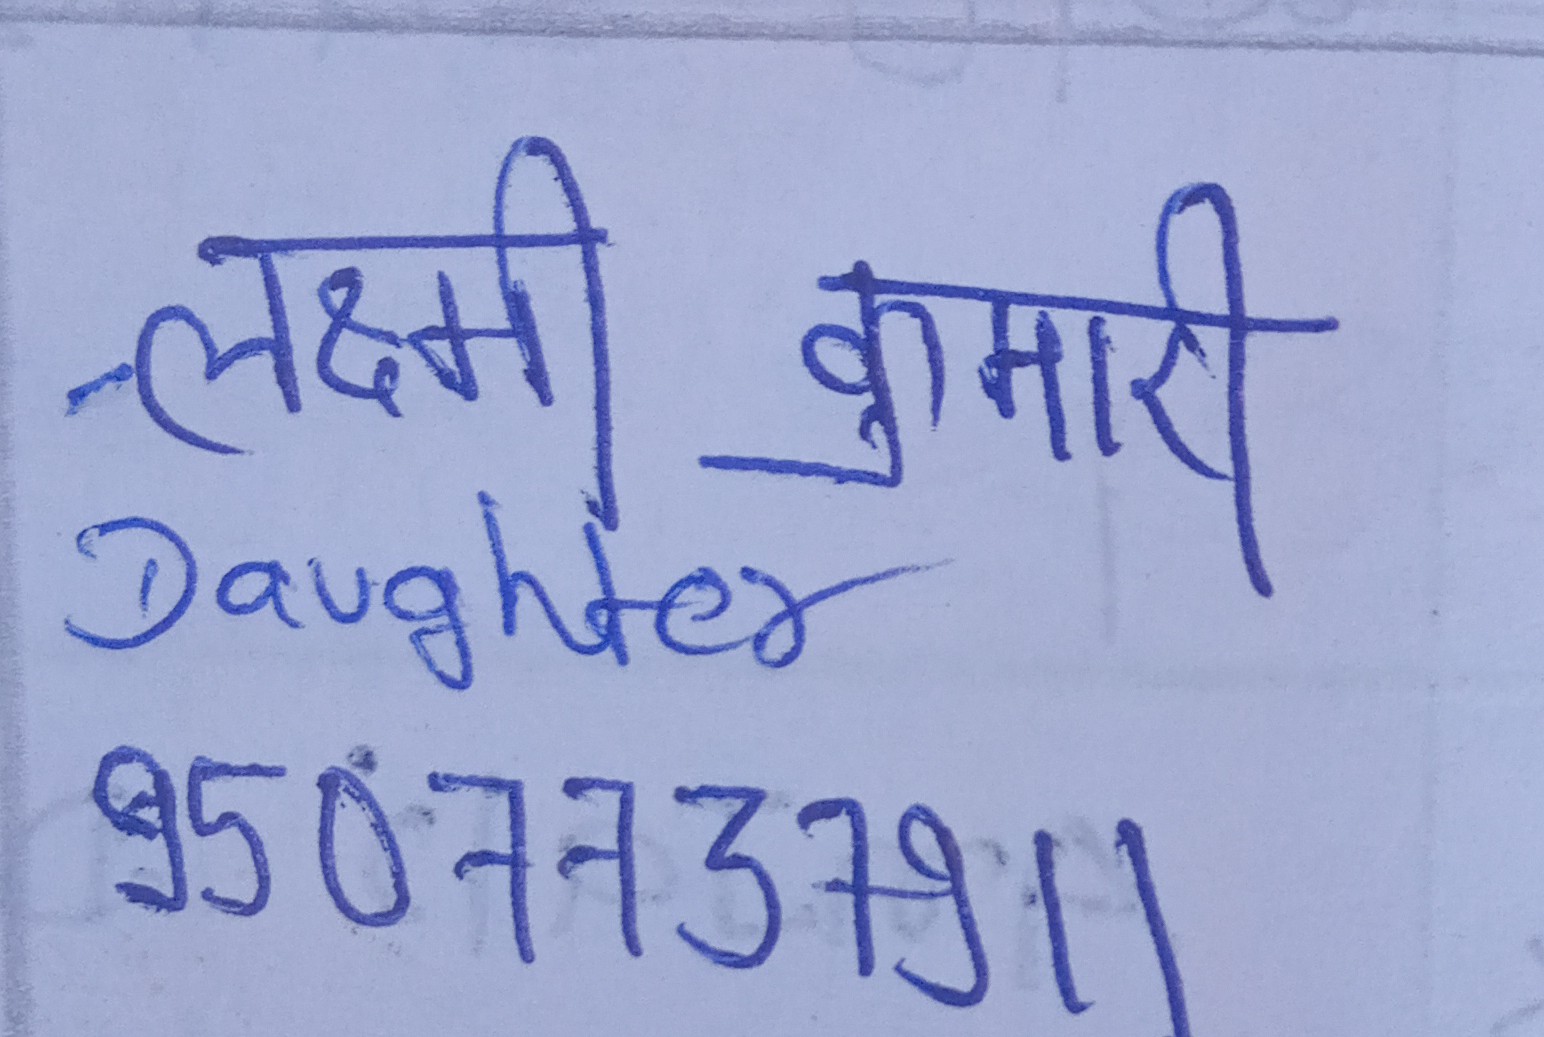 लक्ष्मी कुमारी
Daughter
9507737911